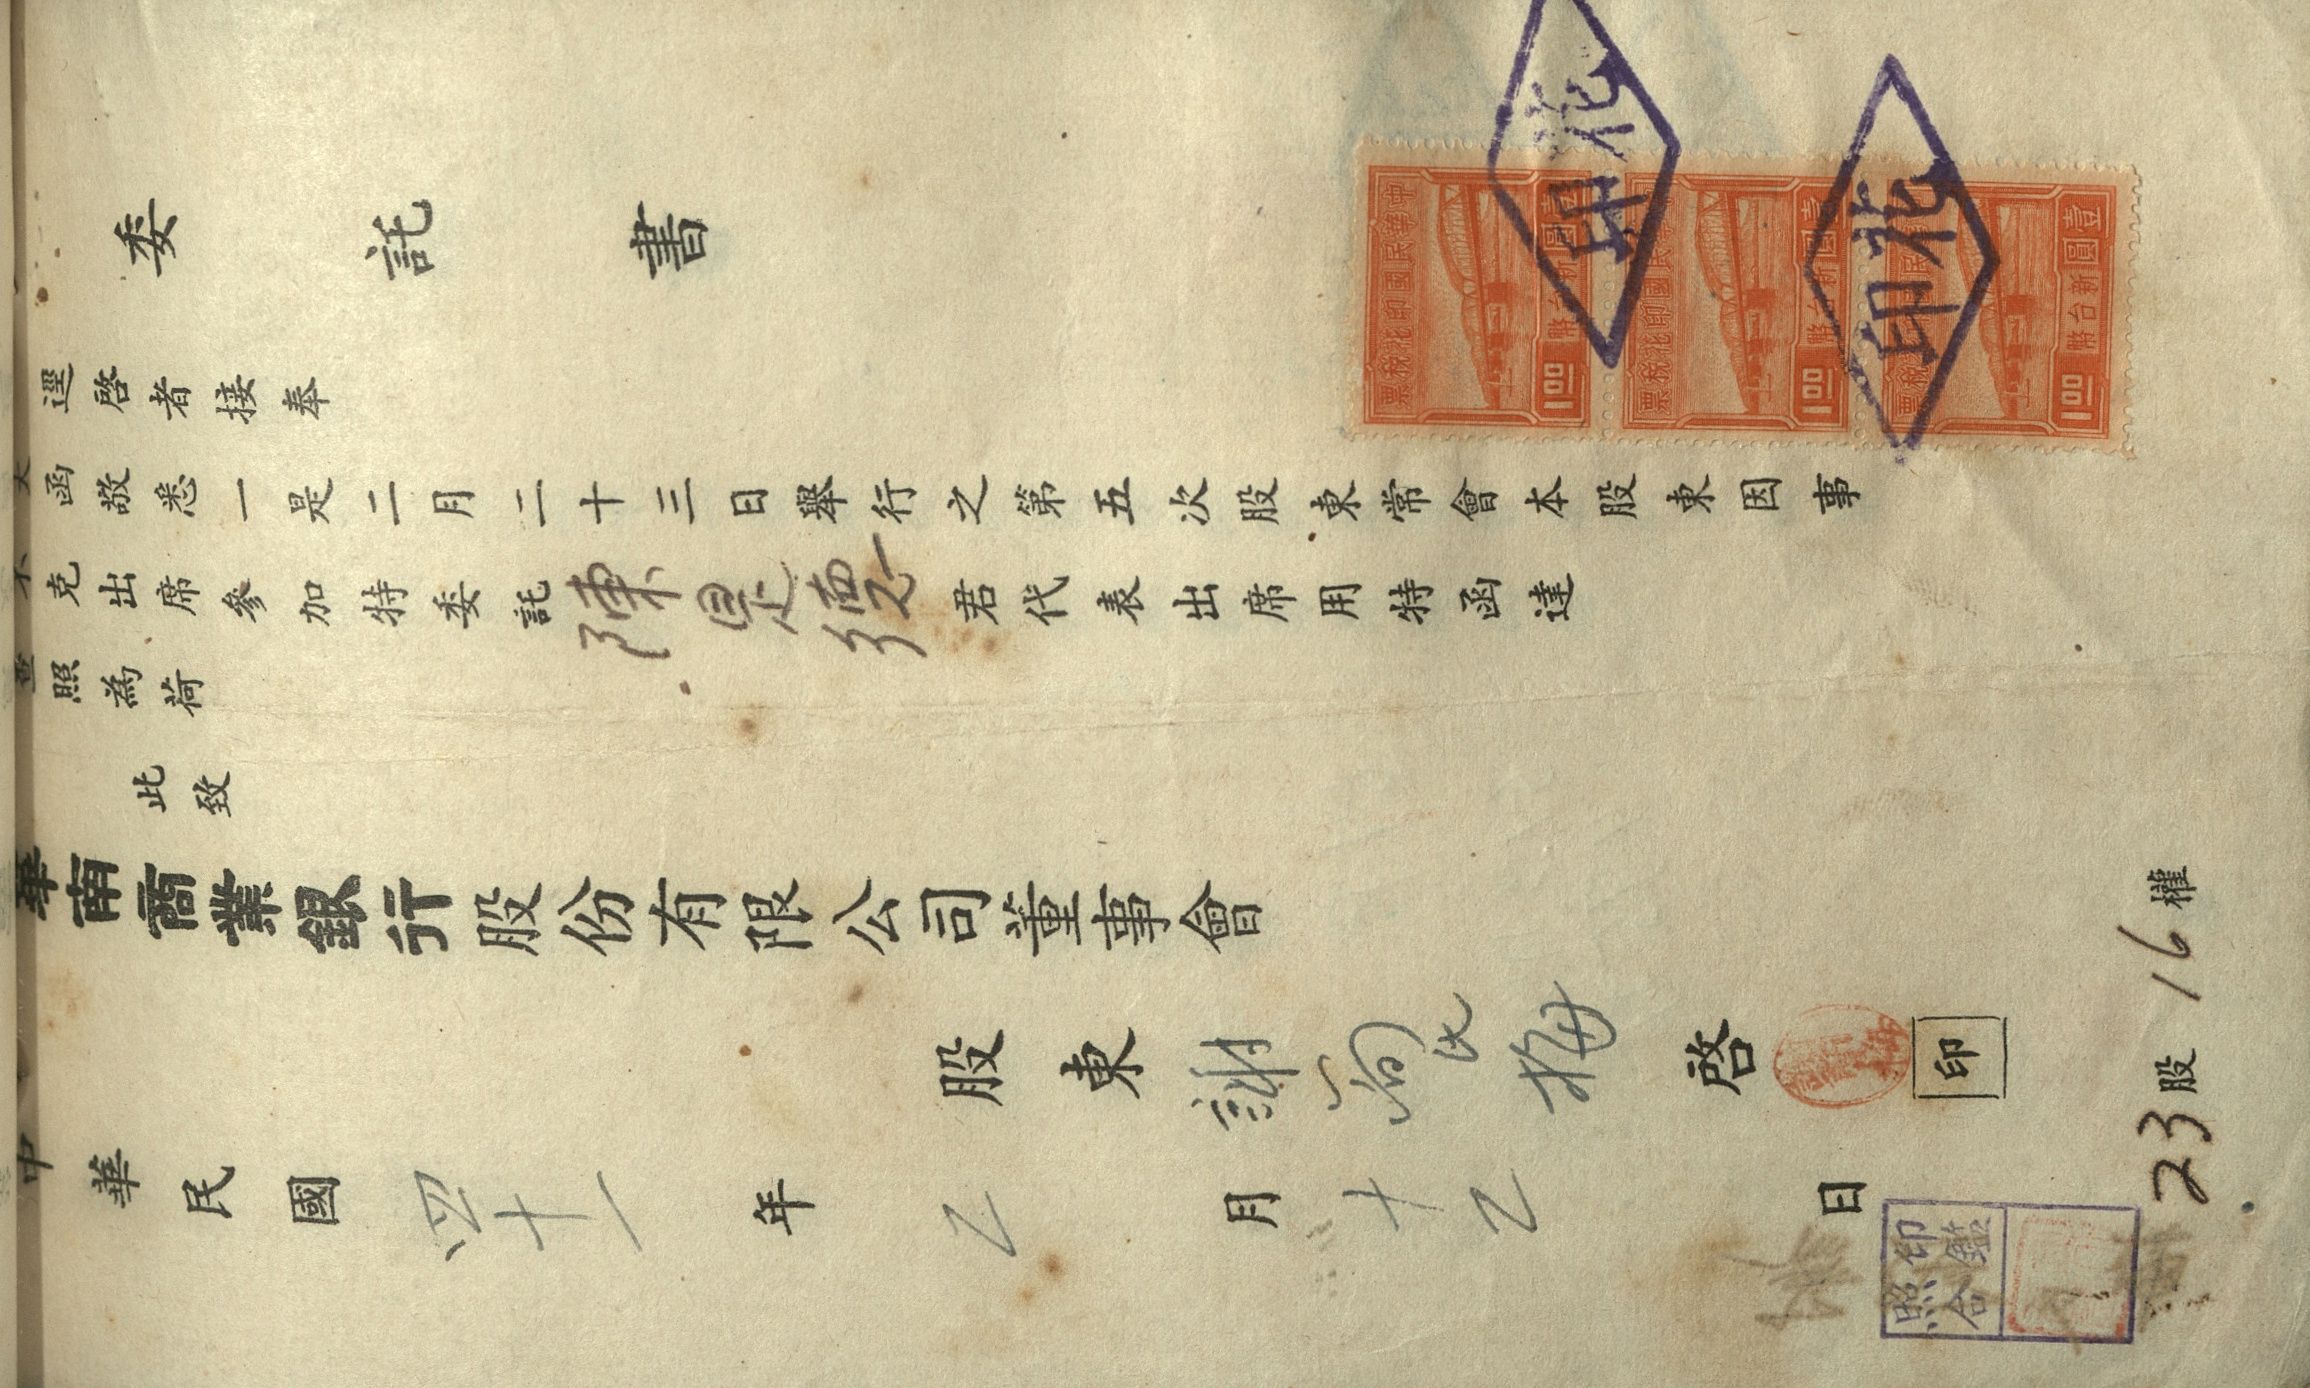 委託書
逕啓者接奉
大函敬悉一是二月二十三日舉行之第五次股東常會本股東因事
不克出席參加特委託陳是德君代表出席用特函達
查照為荷
此致
華南商業銀行股份有限公司董事會
股東謝簡氏梅啓
印
中華民國四十一年乙月十乙日
23股16權
印鑑
照合
中華民國印花稅票
壹圓新台幣
1.00
國印花稅票
圓新台幣
1.00
民
稅票
壹圓新台幣
1.00
印花
印花